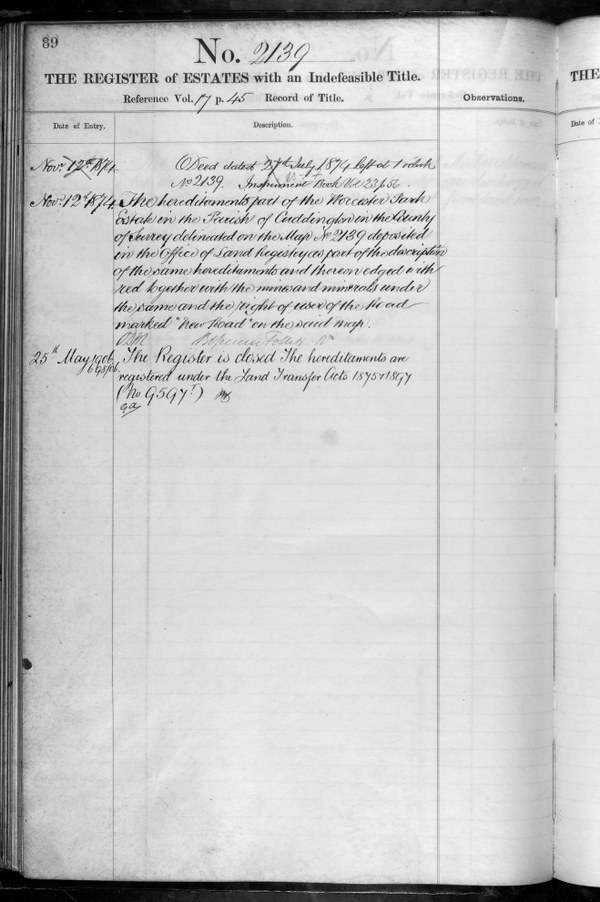 89
No. 2139
THE REGISTER of ESTATES with an Indefeasible Title.
Reference Vol. 17 p. 45 Record of Title.
Observations.
Date of Entry.
Description.
Novr 12th 1874
Deed dated 27th July 1874 left at 1 o'clock
No 2139. Instrument Book Vol 23 p 56.
Novr 12th 1874
The hereditaments part of the Worcester Park
Estate in the Parish of Cuddington in the County
of Surrey delineated on the Map No 2139 deposited
in the Office of Land Registry as part of the description
of the same hereditaments and thereon edged with
red together with the mines and minerals under
the same and the right of user of the Road
marked "New Road" on the said map.
25th May 1906
The Register is closed The hereditaments are
registered under the Land Transfer Acts 1875 & 1897
(No. 9597)
THE
Date of